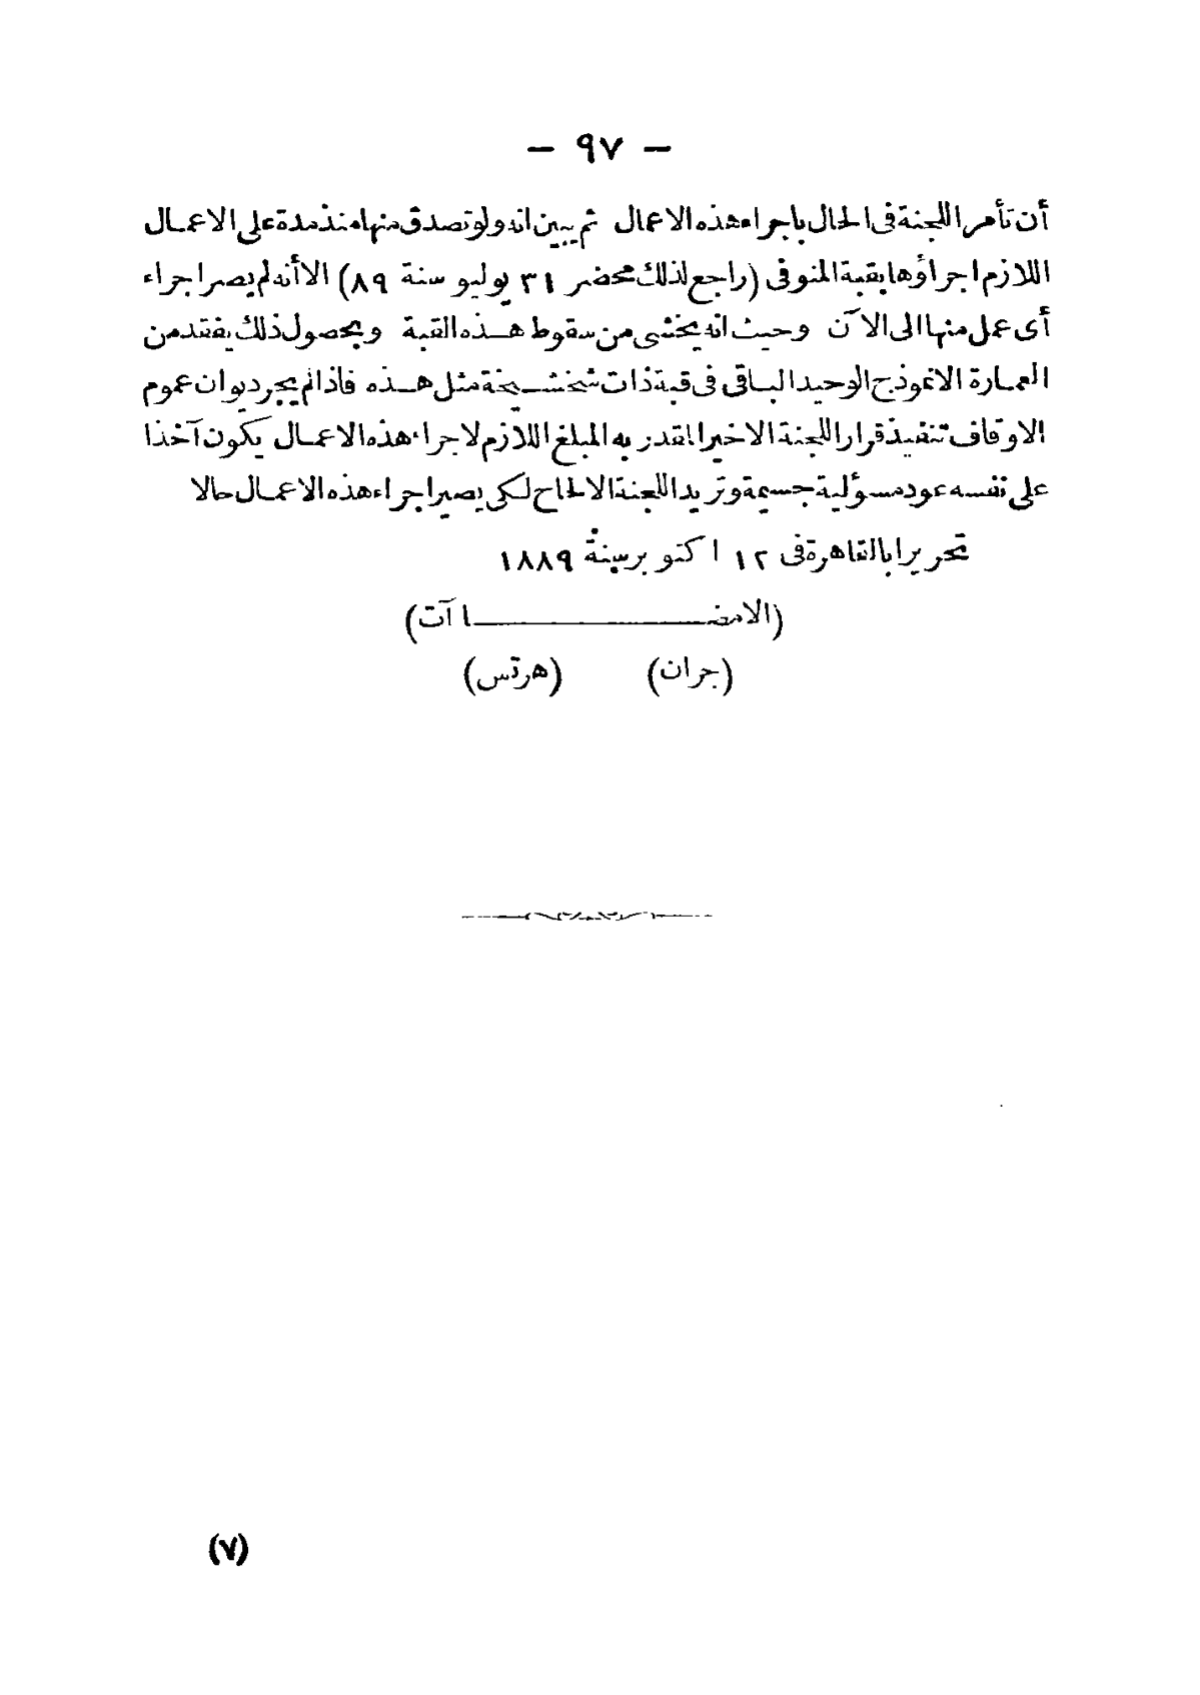 — ٩٧ —
أن تأمر اللجنة فى الحال باجراء هذه الاعمال ثم يبين انه ولو تصدق منها منذ مدة على الاعمال
اللازم اجراؤها بقبة المنوفى (راجع لذلك محضر ٣١ يوليو سنة ٨٩) الا أنه لم يصر اجراء
أى عمل منها الى الآن وحيث انه يخشى من سقوط هذه القبة وبحصول ذلك يفقد من
العمارة الانموذج الوحيد الباقى فى قبة ذات شخشيخة مثل هذه فاذا لم يجر ديوان عموم
الاوقاف تنفيذ قرار اللجنة الاخير المقدر به المبلغ اللازم لاجراء هذه الاعمال يكون آخذا
على نفسه عود مسؤلية جسيمة وتريد اللجنة الالحاح لكى يصير اجراء هذه الاعمال حالا
تحريرا بالقاهرة فى ١٢ اكتوبر سنة ١٨٨٩
(الامضاآت)
(جران) (هرتس)
(٧)